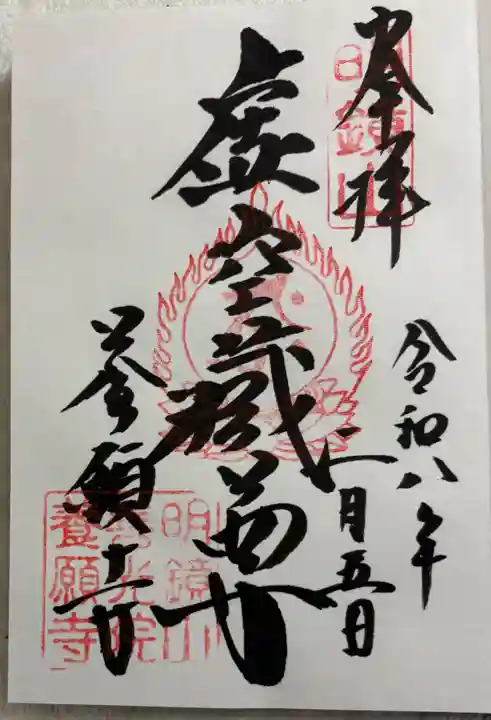 奉拝
明鏡山
令和八年
一月五日
虚空蔵菩薩
養願寺
明鏡山
善光院
養願寺